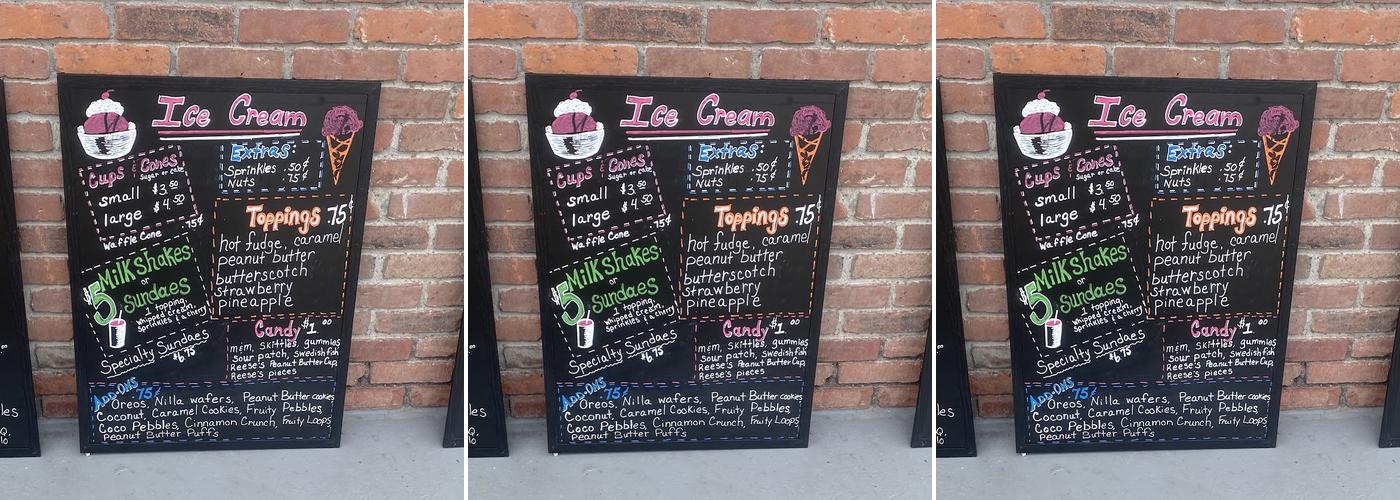 Ice Cream
Cups & Cones
Sugar or cake
small $3.50
large $4.50
Waffle Cone .75¢
Extras:
Sprinkles .50¢
Nuts .75¢
Toppings .75¢
hot fudge, caramel
peanut butter
butterscotch
strawberry
pineapple
$5 Milk Shakes
or
Sundaes
1 topping,
whipped cream,
sprinkles & a cherry
Specialty Sundaes
$6.75
Candy $1.00
m&m, skittles, gummies
sour patch, swedish fish
Reese's Peanut Butter Cup,
Reese's pieces
Add-ons .75¢
Oreos, Nilla wafers, Peanut Butter cookies
Coconut, Caramel Cookies, Fruity Pebbles
Coco Pebbles, Cinnamon Crunch, Fruity Loops
Peanut Butter Puffs
les
Q.
Ice Cream
Cups & Cones
Sugar or cake
small $3.50
large $4.50
Waffle Cone .75¢
Extras:
Sprinkles .50¢
Nuts .75¢
Toppings .75¢
hot fudge, caramel
peanut butter
butterscotch
strawberry
pineapple
$5 Milk Shakes
or
Sundaes
1 topping,
whipped cream,
sprinkles & a cherry
Specialty Sundaes
$6.75
Candy $1.00
m&m, skittles, gummies
sour patch, swedish fish
Reese's Peanut Butter Cup,
Reese's pieces
Add-ons .75¢
Oreos, Nilla wafers, Peanut Butter cookies
Coconut, Caramel Cookies, Fruity Pebbles
Coco Pebbles, Cinnamon Crunch, Fruity Loops
Peanut Butter Puffs
les
Q.
Ice Cream
Cups & Cones
Sugar or cake
small $3.50
large $4.50
Waffle Cone .75¢
Extras:
Sprinkles .50¢
Nuts .75¢
Toppings .75¢
hot fudge, caramel
peanut butter
butterscotch
strawberry
pineapple
$5 Milk Shakes
or
Sundaes
1 topping,
whipped cream,
sprinkles & a cherry
Specialty Sundaes
$6.75
Candy $1.00
m&m, skittles, gummies
sour patch, swedish fish
Reese's Peanut Butter Cup,
Reese's pieces
Add-ons .75¢
Oreos, Nilla wafers, Peanut Butter cookies
Coconut, Caramel Cookies, Fruity Pebbles
Coco Pebbles, Cinnamon Crunch, Fruity Loops
Peanut Butter Puffs